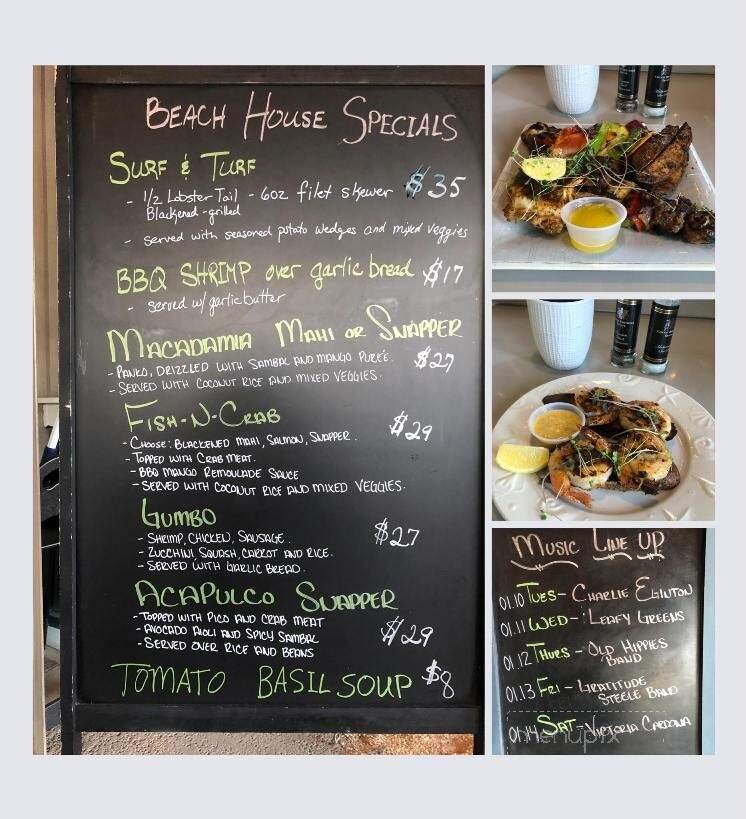 BEACH HOUSE SPECIALS
SURF & TURF
- 1/2 Lobster Tail - 6oz filet skewer $35
Blackened - grilled
- served with seasoned potato wedges and mixed veggies
BBQ SHRIMP over garlic bread $17
- served w/ garlic butter
MACADAMIA MAHI OR SNAPPER
- PANKO, DRIZZLED WITH SAMBAL AND MANGO PUREE. $27
- SERVED WITH COCONUT RICE AND MIXED VEGGIES.
FISH-N-CRAB
- CHOOSE: BLACKENED MAHI, SALMON, SNAPPER. $29
- TOPPED WITH CRAB MEAT.
- BBQ MANGO REMOULADE SAUCE
- SERVED WITH COCONUT RICE AND MIXED VEGGIES.
GUMBO
- SHRIMP, CHICKEN, SAUSAGE. $27
- ZUCCHINI, SQUASH, CARROT AND RICE.
- SERVED WITH GARLIC BREAD.
ACAPULCO SNAPPER
- TOPPED WITH PICO AND CRAB MEAT
- AVOCADO AIOLI AND SPICY SAMBAL $29
- SERVED OVER RICE AND BEANS
TOMATO BASIL SOUP $8
MUSIC LINE UP
01.10 TUES - CHARLIE EGINTON
01.11 WED - LEAFY GREENS
01.12 THURS - OLD HIPPIES
BAND
01.13 FRI - GRATITUDE
STEELE BAND
01.14 SAT - VICTORIA CARDONA
menupix